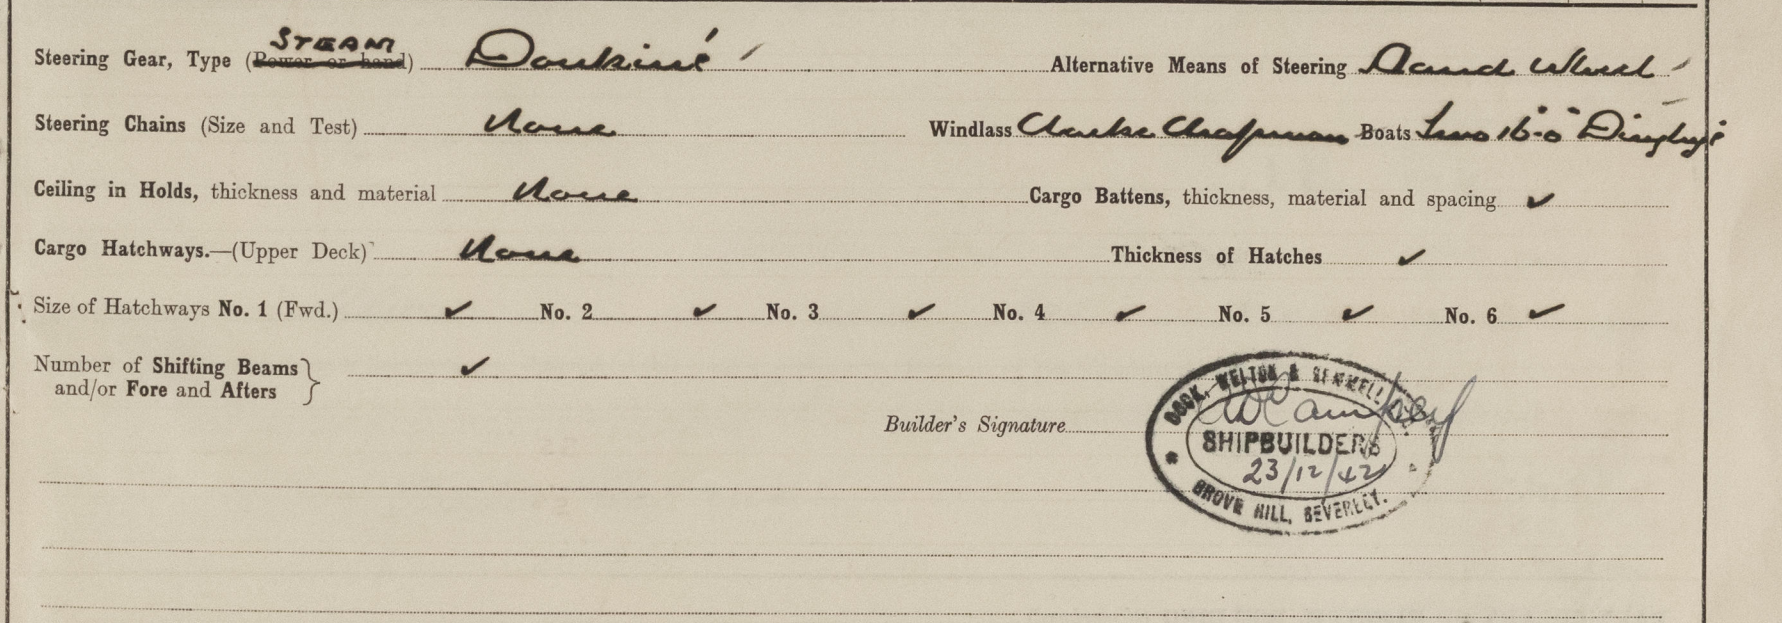 STEAM
Steering Gear, Type (Power or hand) Donkins' Alternative Means of Steering Hand Wheel
Steering Chains (Size and Test) None Windlass Clarke Chapman Boats Two 16'-0" Dinghys
Ceiling in Holds, thickness and material None Cargo Battens, thickness, material and spacing ✓
Cargo Hatchways.—(Upper Deck) None Thickness of Hatches ✓
Size of Hatchways No. 1 (Fwd.) ✓ No. 2 ✓ No. 3 ✓ No. 4 ✓ No. 5 ✓ No. 6 ✓
Number of Shifting Beams
and/or Fore and Afters } ✓
COOK, WELTON & GEMMELL
Builder's Signature
SHIPBUILDERS
23/12/42
GROVE HILL, BEVERLEY.